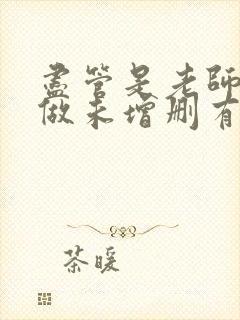 盡管是老師
做未增刪有
茶暖